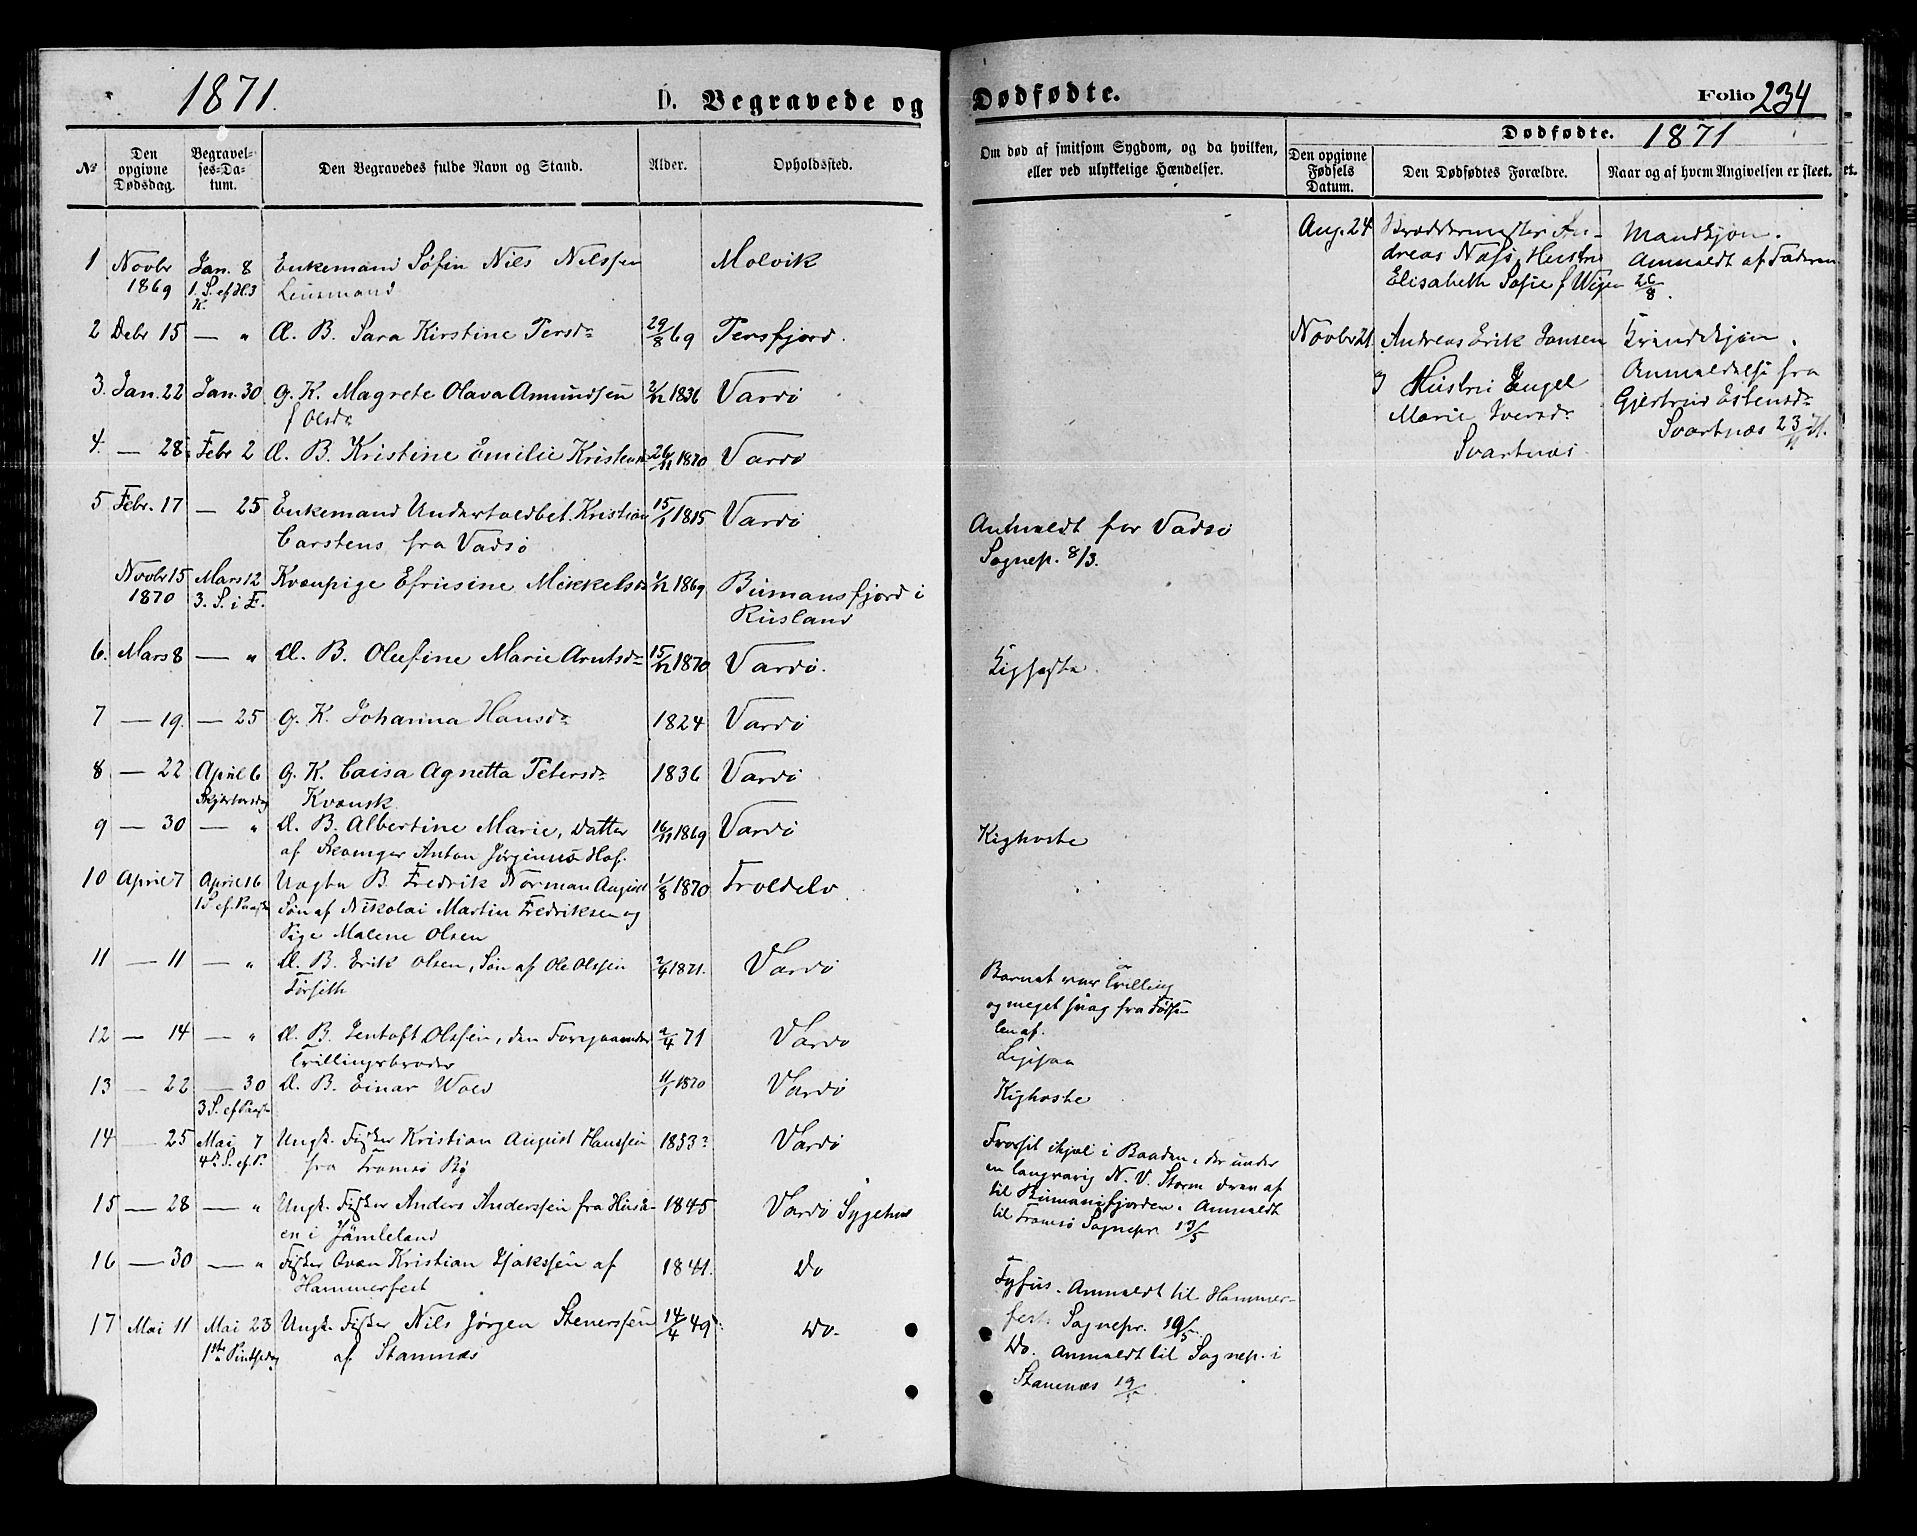 1871.
D. Begravede og
Dødfødte.
Folio 234
Dødfødte. 1871
No
Den opgivne Dødsdag.
Begravelses-Datum.
Den Begravedes fulde Navn og Stand.
Alder.
Opholdssted.
Om død af smitsom Sygdom, og da hvilken,
eller ved ulykkelige Hændelser.
Den opgivne Fødsels Datum.
Den Dødfødtes Forældre.
Naar og af hvem Angivelsen er skeet.
1 Novbr Jan. 8 Enkemand Nils Nilssen Molvik
1869 1. S. ef. H.3 K. Lensmand
2 Debr 15 — " Æ. B. Sara Kirstine Persdr 29/8 69 Persfjord.
3. Jan. 22 Jan. 30 G. K. Magrete Olava Amundsen 1836 Vardø
f Olsdr
4. — 28 Febr 2 Æ. B. Kristine Emilie 26/11 1870 Vardø
5 Febr. 17 — 25 Enkemand Undertoldbet. Kristian 15/1 1815 Vardø
Carstens fra Vadsø
Novbr 15 Mars 12 Kvænpige Efrusine Mikkelsdr 1869 Bumansfjord i
1870 3. S. i F. Rusland
6. Mars 8 — " Æ. B. Olufine Marie Arntsdr 15/12 1870 Vardø.
7 — 19. — 25 G. K. Johanna Hansdr 1824 Vardø
8 — 22 April 6 G. K. Caisa Agnetta Petersdr 1836 Vardø
Skjærtorsdag Kvænsk
9 — 30 — " Æ. B. Albertine Marie, Datter 16/11 1869 Vardø
af Anton Jørginus Hof.
10 April 7 April 16 Uægte B. Fredrik Norman August 1/8 1870 Troldelv
1 S. ef. Paaske Søn af Nikolai Martin Fredriksen og
Pige Malene Olsen
11 — 11 — " Æ. B. Erik Olsen, Søn af Ole Olssen 2/4 1871. Vardø
Forseth
12 — 14 — " Æ. B. Jentoft Olssen, den Foregaaendes 2/4 71 Vardø
Tvillingbroder
13 — 22 — 30 Æ. B. Einar Wold 11/1 1870 Vardø
3 S. ef Paaske
14 — 25 Mai 7 Ungk. Fisker Kristian August Hanssen 1853? Vardø
4de S. ef. P. fra Tromsø By
15 — 28 — " Ungk. Fisker Anders Anderssen fra Huså- 1845 Vardø Sygehus
en i Jämteland
16 — 30 — " Fisker Qvæn Kristian Isakssen af 1841. Do
Hammerfest
17 Mai 11 Mai 23 Ungk. Fisker Nils Jørgen Stenerssen 14/4 49 Do.
1ste Pintsedag af Stamnæs
Anmeldt for Vadsø
Sognep. 8/3.
Kighoste.
Kighoste
Barnet var Tvilling
og meget svag fra Fødse-
len af.
Ligesaa
Kighoste
Frosset ihjel i Baaden, der under
en langvarig N. V. Storm drev af
til Bumansfjorden. Anmeldt
til Tromsø Sognepr. 13/5
Tyfus. Anmeldt til Hammer-
fest Sognepr. 19/5.
Do. Anmeldt til Sognep. i
Stamnæs 19/5.
Aug. 24 An-
dreas Næss, Hustru
Elisabeth Sofie f Wigen
Mandkjøn.
Anmeldt af Faderen
26/8.
Novbr 21. Andreas Erik Jansen
og Hustru Engel
Marie Iversdr
Svartnæs
Kvindekjøn.
Anmeldelse fra
Gjertrud Estensdr
Svartnæs 23/11 71.